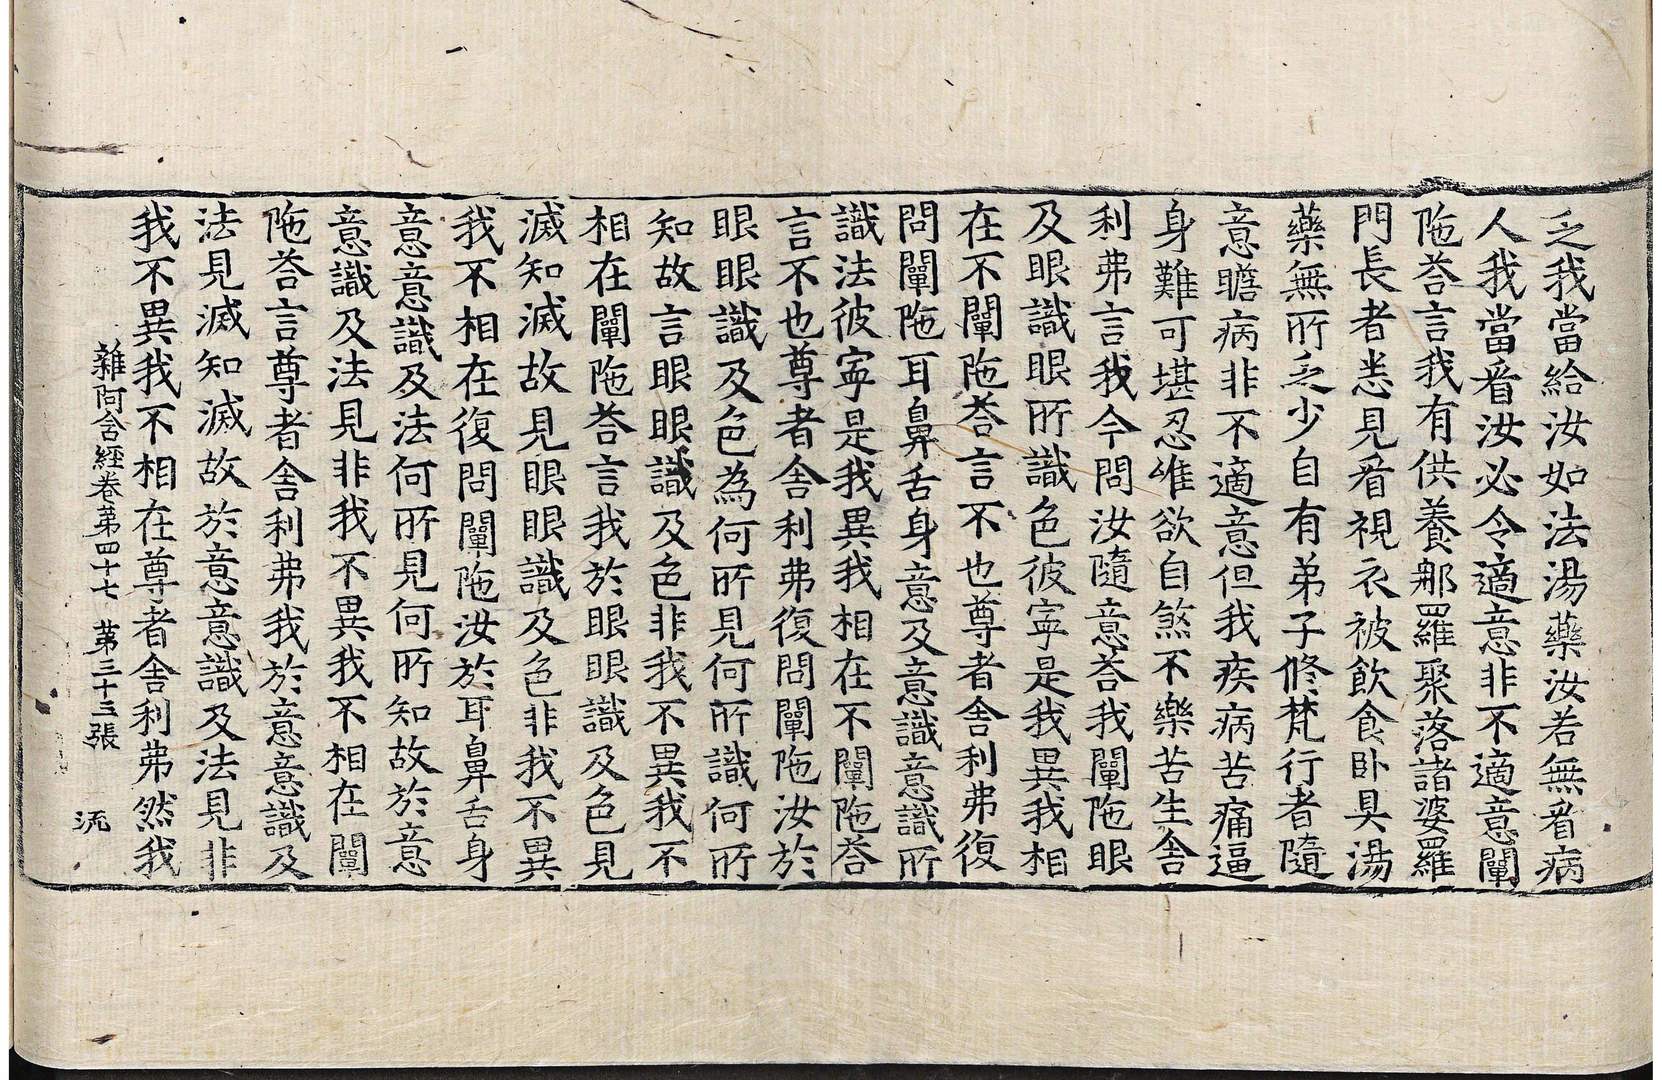 乏我當給汝如法湯藥汝若無看病
人我當看汝必令適意非不適意闡
陁荅言我有供養那羅聚落諸婆羅
門長者悉見看視衣被飲食卧具湯
藥無所乏少自有弟子修梵行者隨
意瞻病非不適意但我疾病苦痛逼
身難可堪忍唯欲自煞不樂苦生舍
利弗言我今問汝隨意荅我闡陁眼
及眼識眼所識色彼寧是我異我相
在不闡陁荅言不也尊者舍利弗復
問闡陁耳鼻舌身意及意識意識所
識法彼寧是我異我相在不闡陁荅
言不也尊者舍利弗復問闡陁汝於
眼眼識及色為何所見何所識何所
知故言眼眼識及色非我不異我不
相在闡陁荅言我於眼眼識及色見
滅知滅故見眼眼識及色非我不異
我不相在復問闡陁汝於耳鼻舌身
意意識及法何所見何所知故於意
意識及法見非我不異我不相在闡
陁荅言尊者舍利弗我於意意識及
法見滅知滅故於意意識及法見非
我不異我不相在尊者舍利弗然我
雜阿含經卷第四十七 第三十三張 流